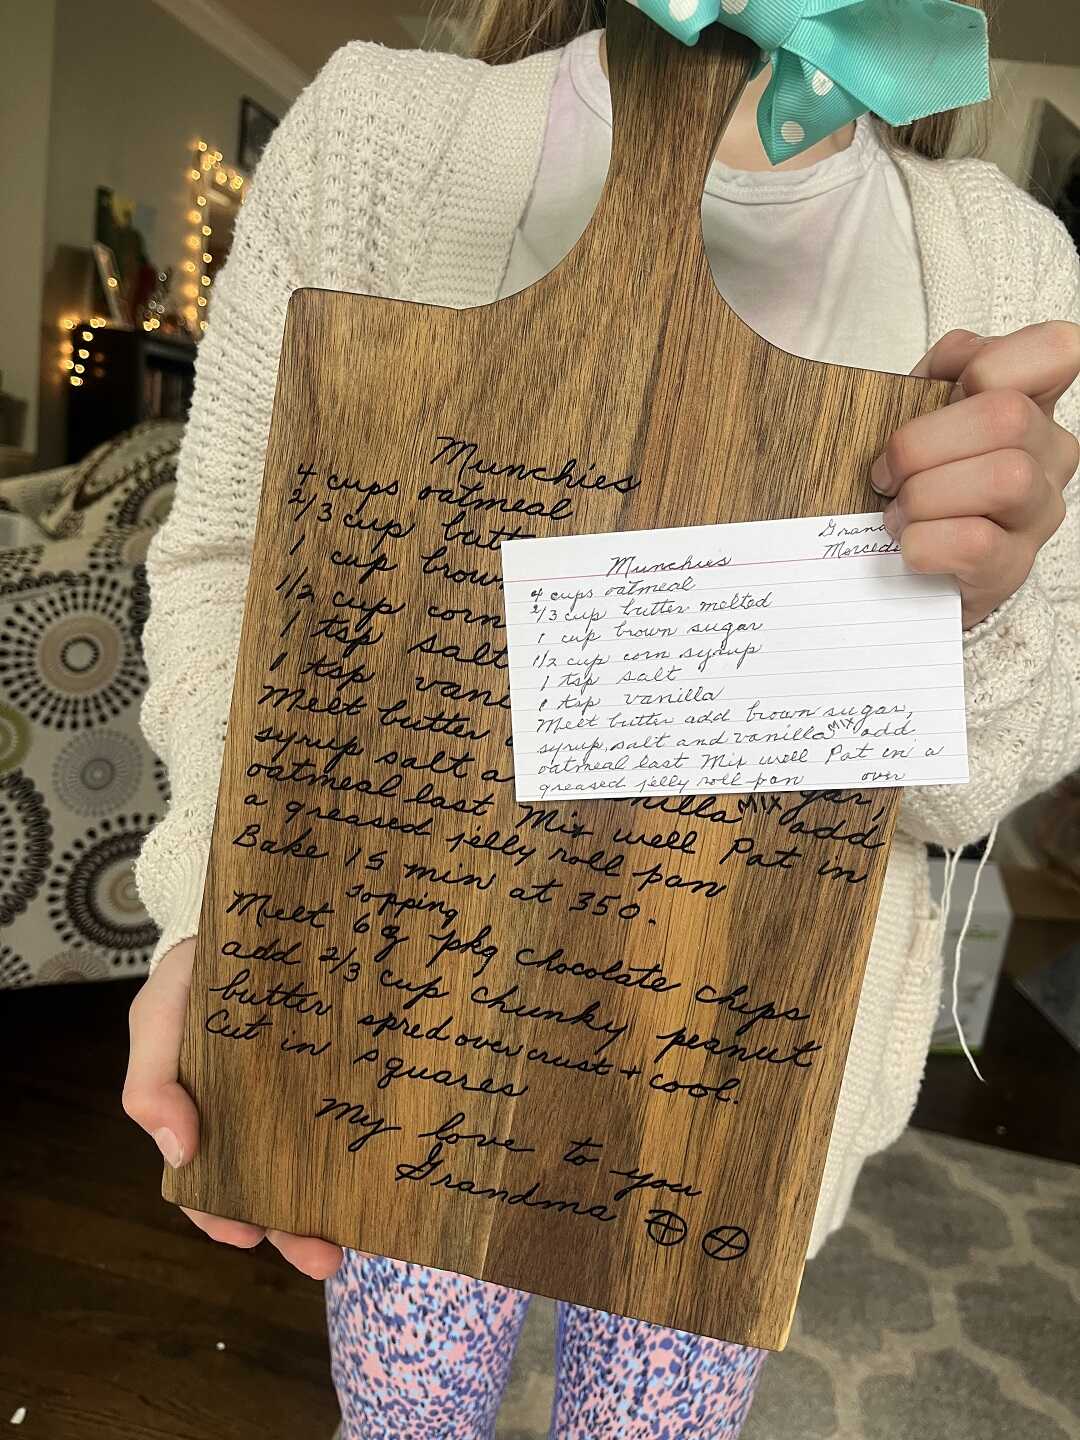 Munchies
4 cups oatmeal
2/3 cup butt
1 cup brow
1/2 cup corn
1 tsp salt
1 tsp vani
Melt butter
syrup salt a
gar,
oatmeal last Mix well Pat in
illa MIX add
a greased jelly roll pan
Bake 15 min at 350.
Topping
Melt 6 oz pkg chocolate chips
add 2/3 cup chunky peanut
butter spred over crust + cool.
Cut in squares
My love to you
Grandma
Grand
Merced
Munchies
4 cups oatmeal
2/3 cup butter melted
1 cup brown sugar
1/2 cup corn syrup
1 tsp salt
1 tsp vanilla
Melt butter add brown sugar,
syrup, salt and vanilla MIX add
oatmeal last Mix well Pat in a
greased jelly roll pan over